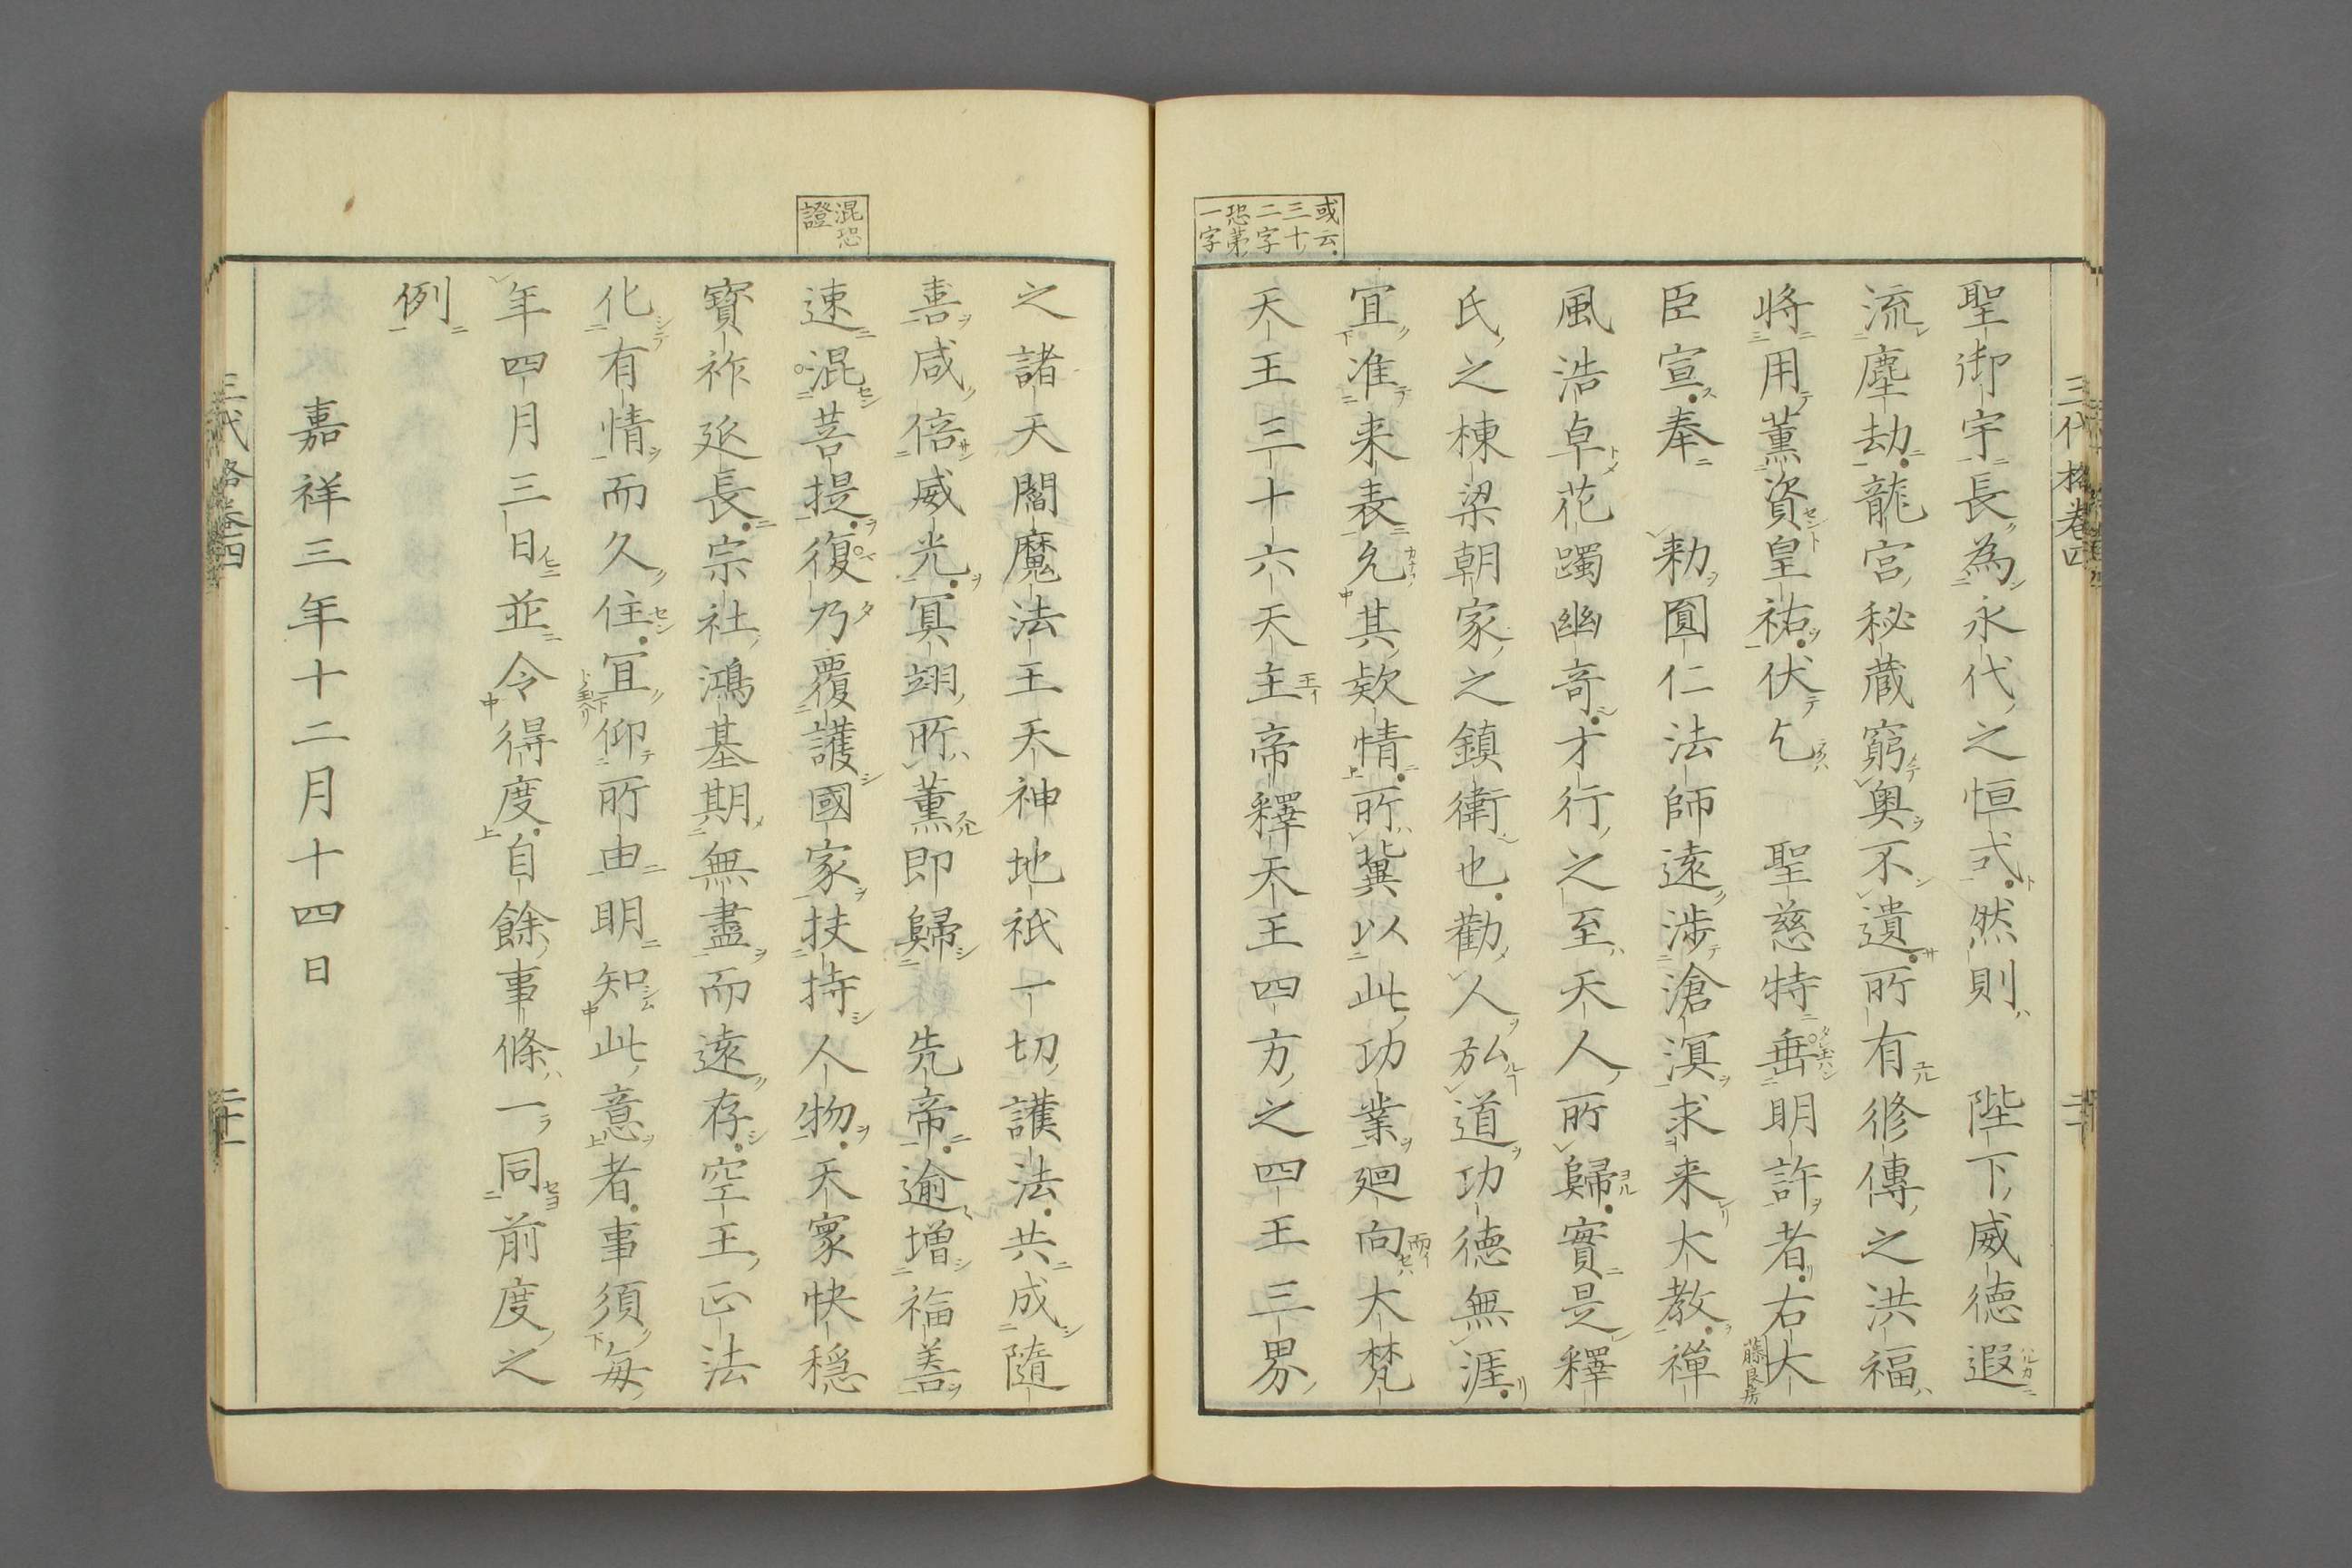 三代格卷四
二十
或云
三十
二字
恐第
一字
聖御宇長為永代之恒式然則　陛下威徳遐
流塵劫龍宮秘蔵窮奥不遺所有修傳之洪福
将用薫資皇祐伏乞　聖慈特垂明許者右大
藤良房
臣宣奉　勅圓仁法師遠渉滄溟求来大教禅
風浩卓花躅幽竒才行之至天人所歸實是釋
氏之棟梁朝家之鎮衛也勸人弘道功徳無涯
宜准来表允其欵情所冀以此功業廻向大梵
天王三十六天主帝釋天王四方之四王三界
混恐
證
之諸天閻魔法王天神地祇一切護法共成隨
喜咸倍威光冥翊所薫即歸　先帝逾増福善
速混菩提復乃覆護國家扶持人物天寰快穏
寳祚延長宗社鴻基期無盡而遠存空王正法
化有情而久住宜仰所由明知此意者事須毎
年四月三日並令得度自餘事條一同前度之
例
嘉祥三年十二月十四日
三代格卷四
二十一